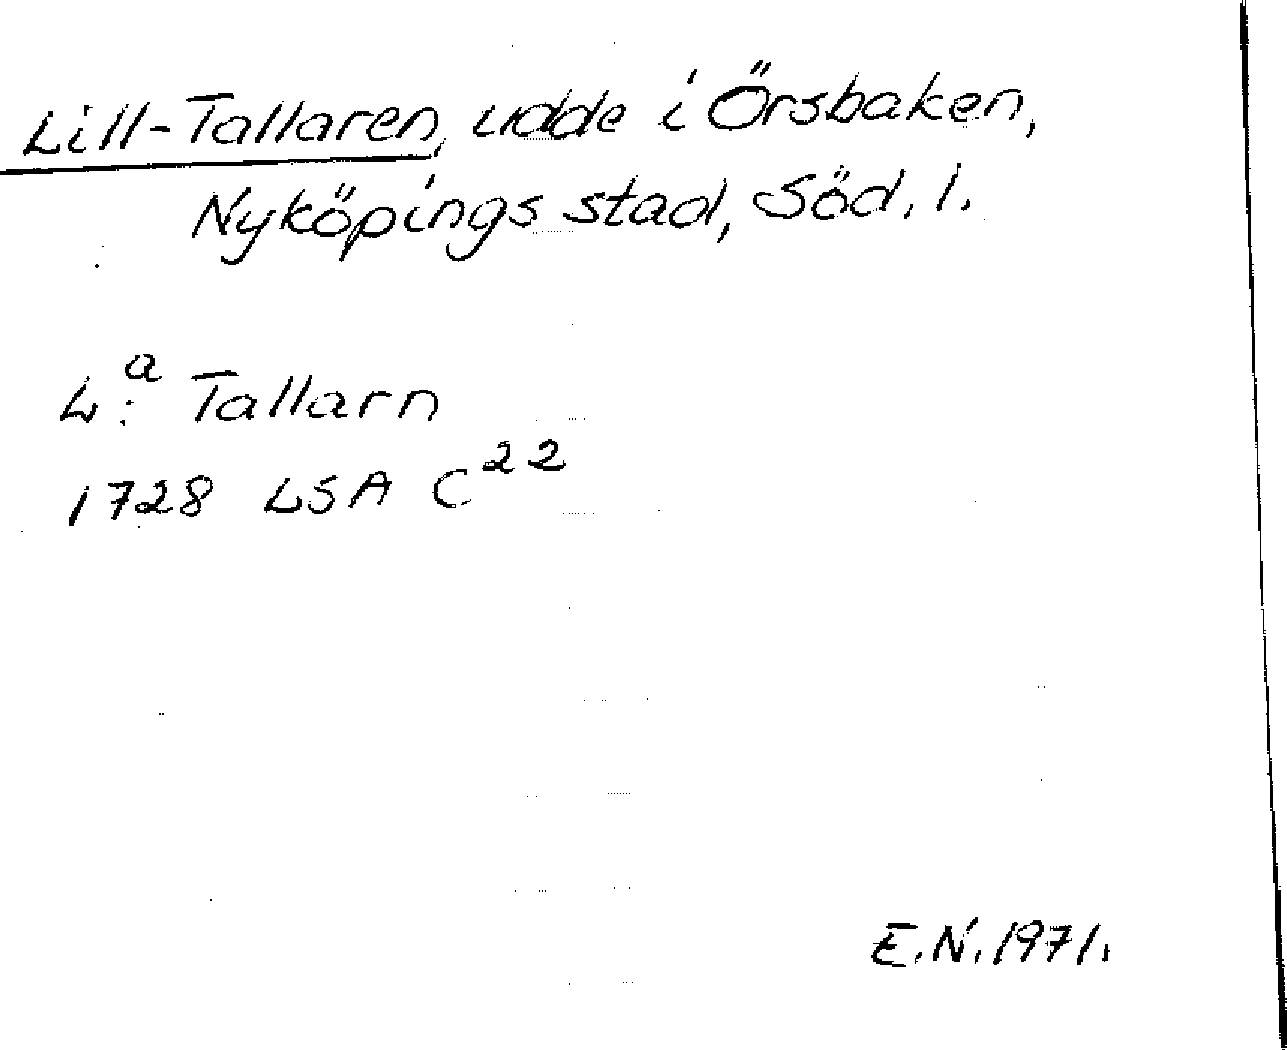 Lill-Tallaren, udde i Örsbaken,
Nyköpings stad, Söd. l.
L:a Tallarn
1728 LSA C22
E.N. 1971.